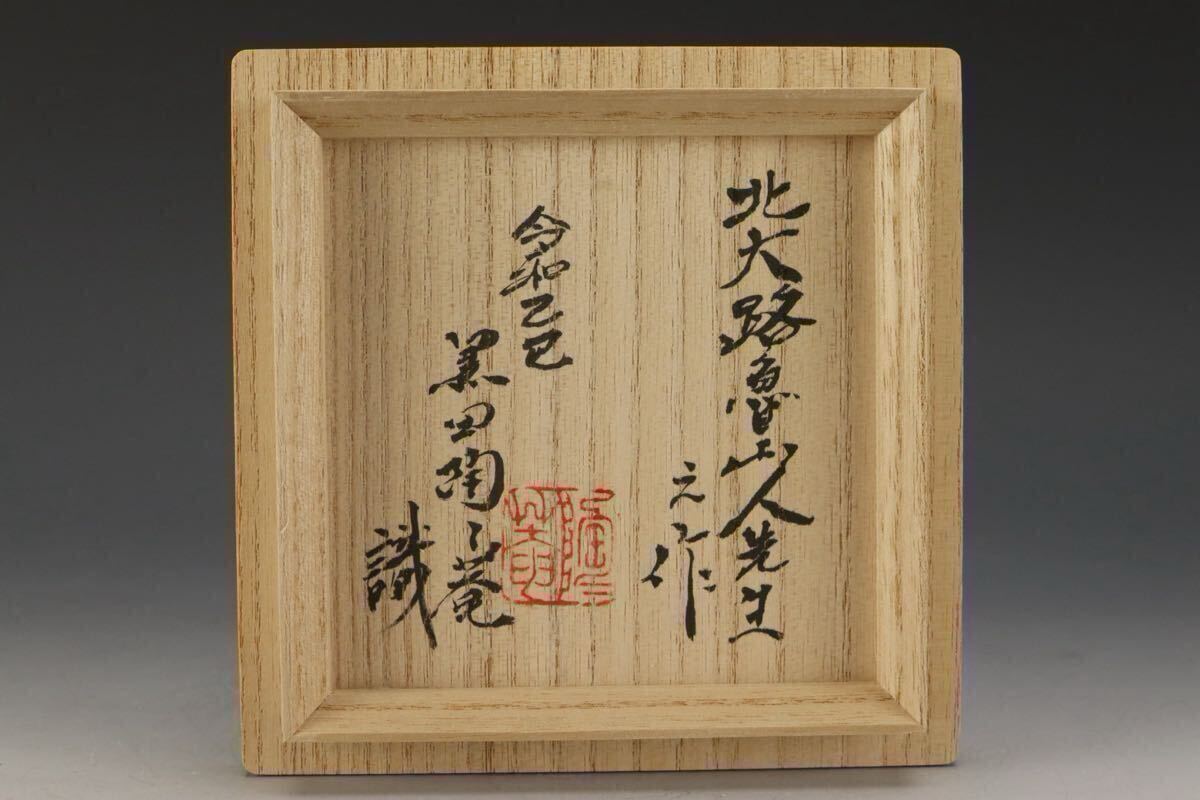 北大路魯山人先生
之作
令和乙巳
黒田陶々菴
識